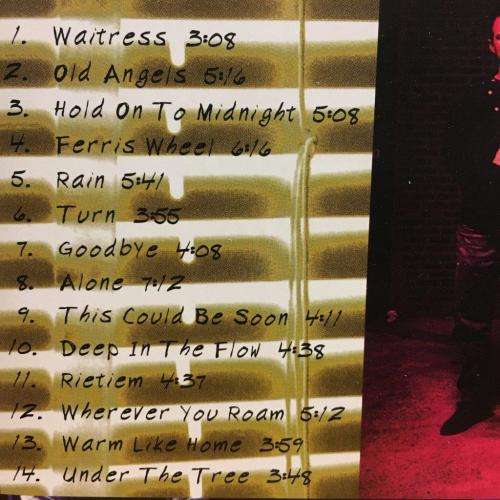 1. Waitress 3:08
2. Old Angels 5:16
3. Hold On To Midnight 5:08
4. Ferris Wheel 6:16
5. Rain 5:41
6. Turn 3:55
7. Goodbye 4:08
8. Alone 7:12
9. This Could Be Soon 4:11
10. Deep In The Flow 4:38
11. Rietiem 4:37
12. Wherever You Roam 5:12
13. Warm Like Home 3:59
14. Under The Tree 3:48